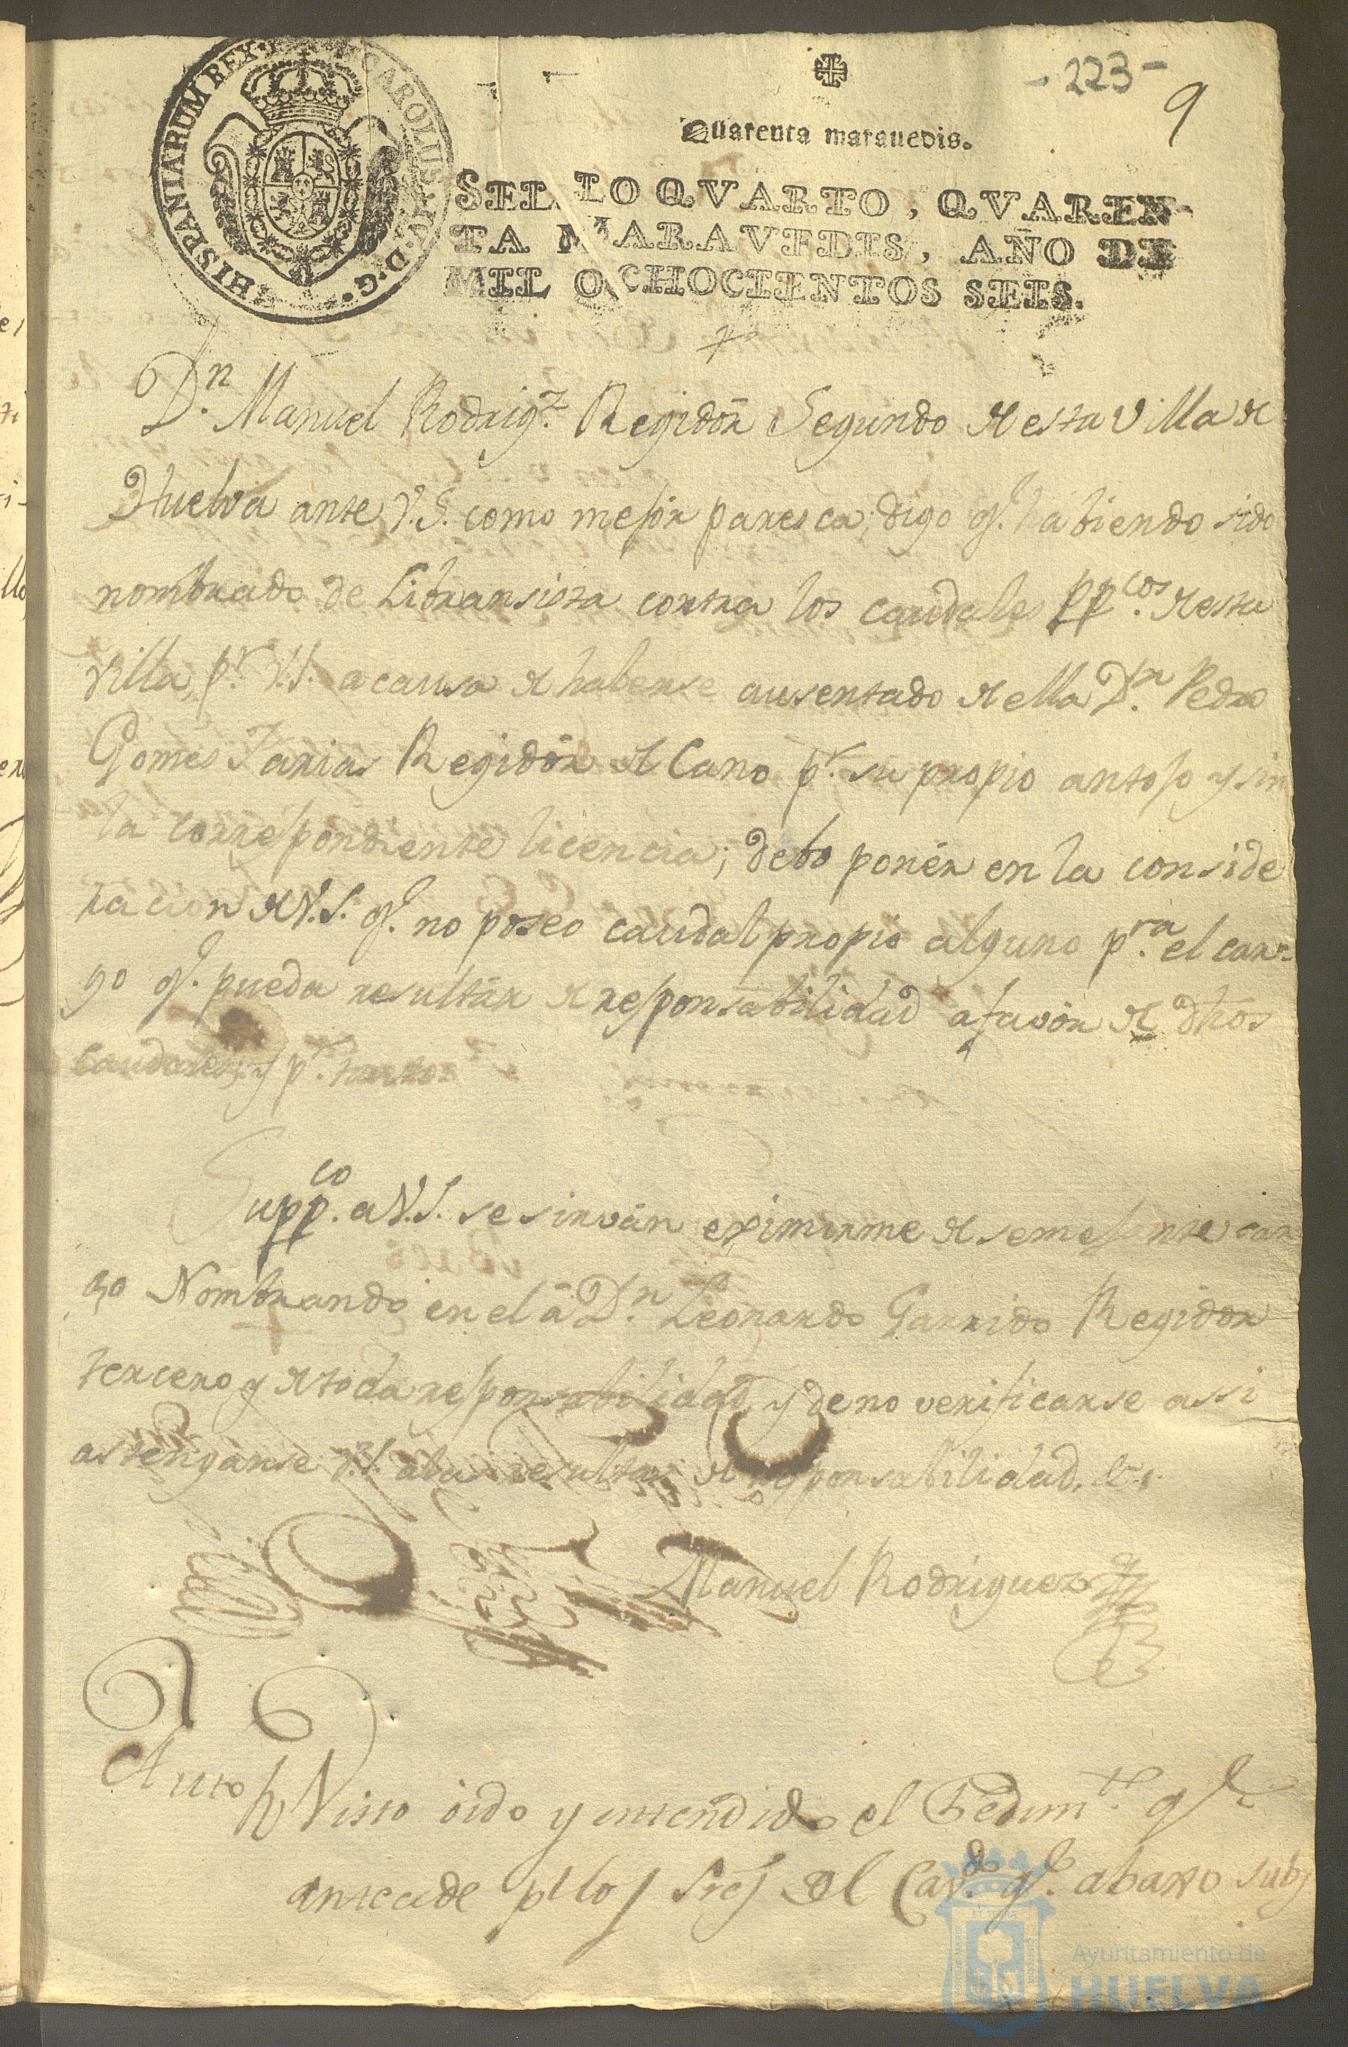 -223-
9
HISPANIARUM REX. CAROLUS IV. D. G.
Quarenta marauedis.
SELLO QVARTO, QVAREN-
TA MARAVEDIS, AÑO DE
MIL OCHOCIENTOS SEIS.
Dn. Manuel Rodrigz. Regidōr Segundo de esta Villa de
Huelva ante V.S. como mejór paresca, digo q.e habiendo sido
nombrado de Libransista contra los caudales ppcos. de esta
Villa, pr. V.S. a causa de haberse ausentado de ella Dn. Pedro
Gomes Farias Regidōr de Cano pr. su propio antojo y sin
la correspondiente licencia; debo ponér en la conside
racion de V.S. q.e no poseo caudal propio alguno pra. el car-
go q.e pueda resultár de responsabilidad a favór de dhos
caudales, y pr. tanto
Suppco. a V.S. se sirván eximirme de semejante car
go Nombrando en el â Dn. Leonardo Garrido Regidor
tercero y de toda responsabilidad, y de no verificarse assi
astenganse V.S. a las resultas de responsabilidad, &.
Manuel Rodriguez
Auto Visto oido y entendido el Pedimto. q.e
antecede pr los Sres del Cavdo. q.e abaxo subs
Ayuntamiento de
HUELVA